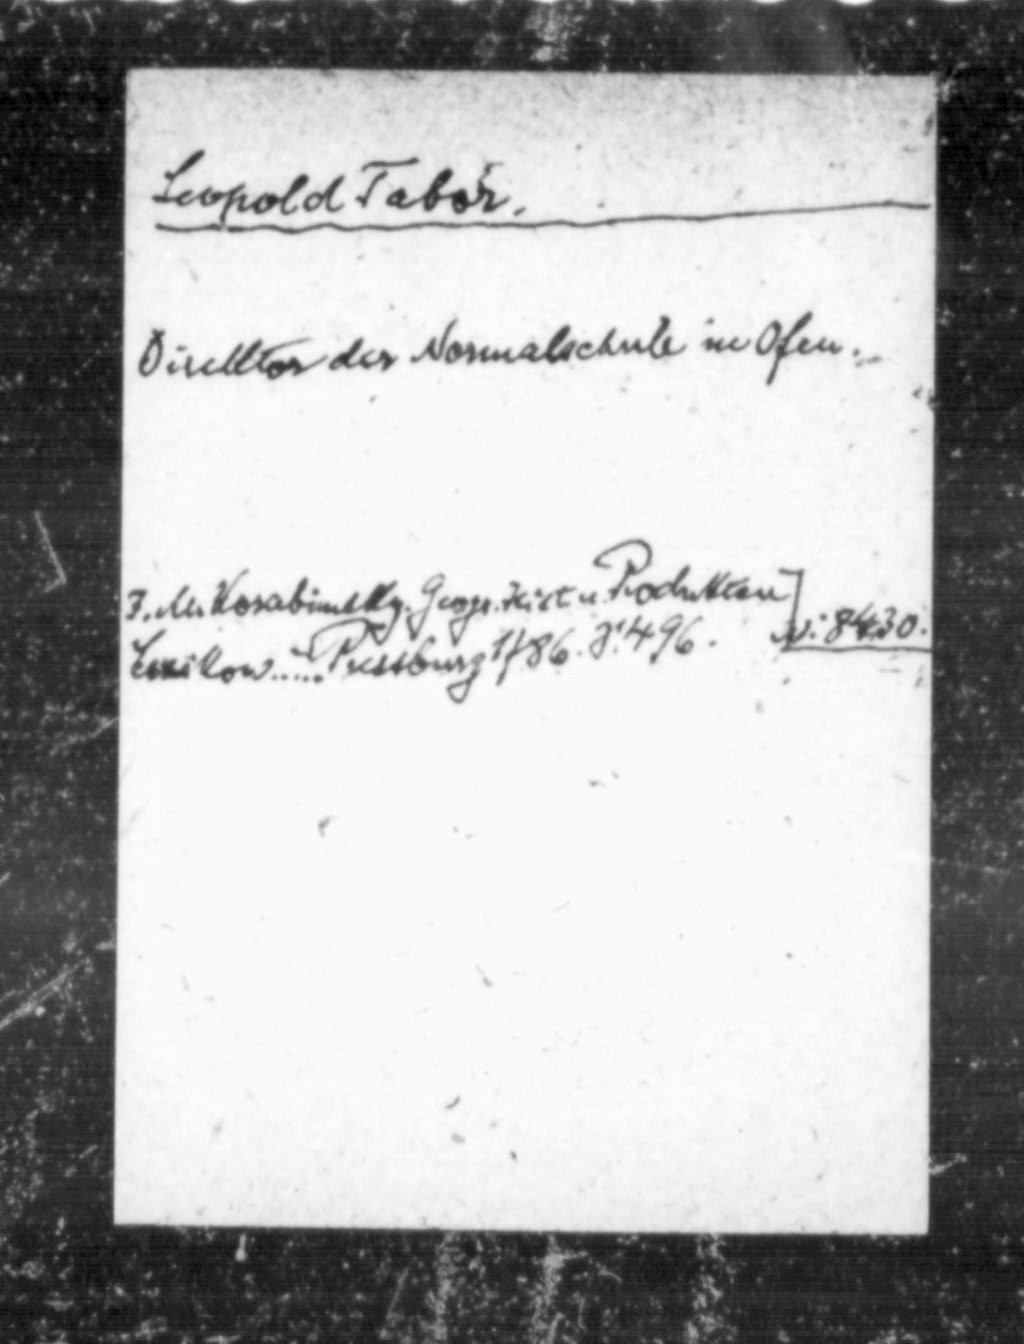 Leopold Tabór.
Direktor der Normalschule in Ofen.
J. M. Korabinsky. Geogr. Hist. u. Produkten
Lexikon..... Pressburg 1786. S. 496.
N: 8430.